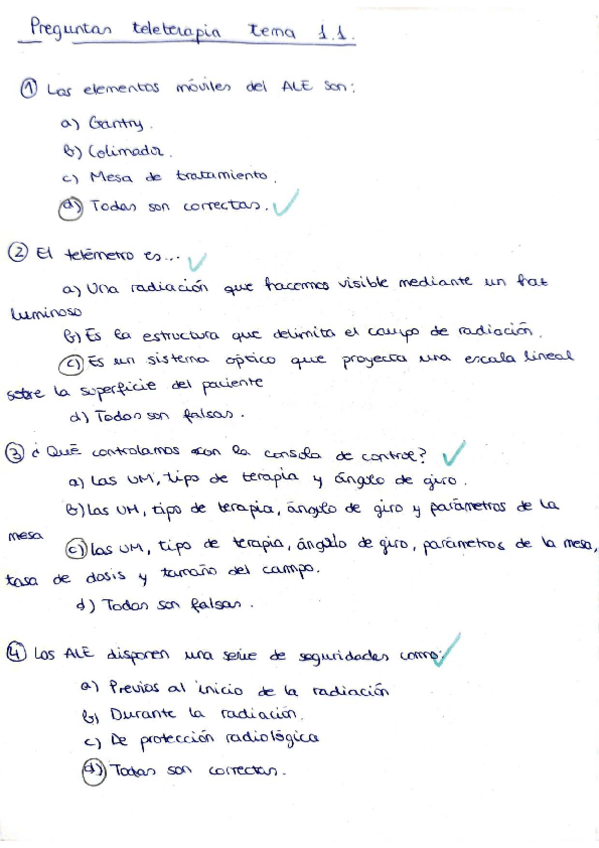 Preguntas teleterapia tema 1.1.
① Los elementos móviles del ALE son:
a) Gantry.
b) Colimador.
c) Mesa de tratamiento.
d) Todas son correctas.
② El telémetro es...
a) Una radiación que hacemos visible mediante un haz
luminoso
b) Es la estructura que delimita el campo de radiación.
c) Es un sistema óptico que proyecta una escala lineal
sobre la superficie del paciente
d) Todas son falsas.
③ ¿Qué controlamos con la consola de control?
a) Las UM, tipo de terapia y ángulo de giro.
b) Las UM, tipo de terapia, ángulo de giro y parámetros de la
mesa
c) Las UM, tipo de terapia, ángulo de giro, parámetros de la mesa,
tasa de dosis y tamaño del campo.
d) Todas son falsas.
④ Los ALE disponen una serie de seguridades como:
a) Previos al inicio de la radiación
b) Durante la radiación.
c) De protección radiológica
d) Todas son correctas.